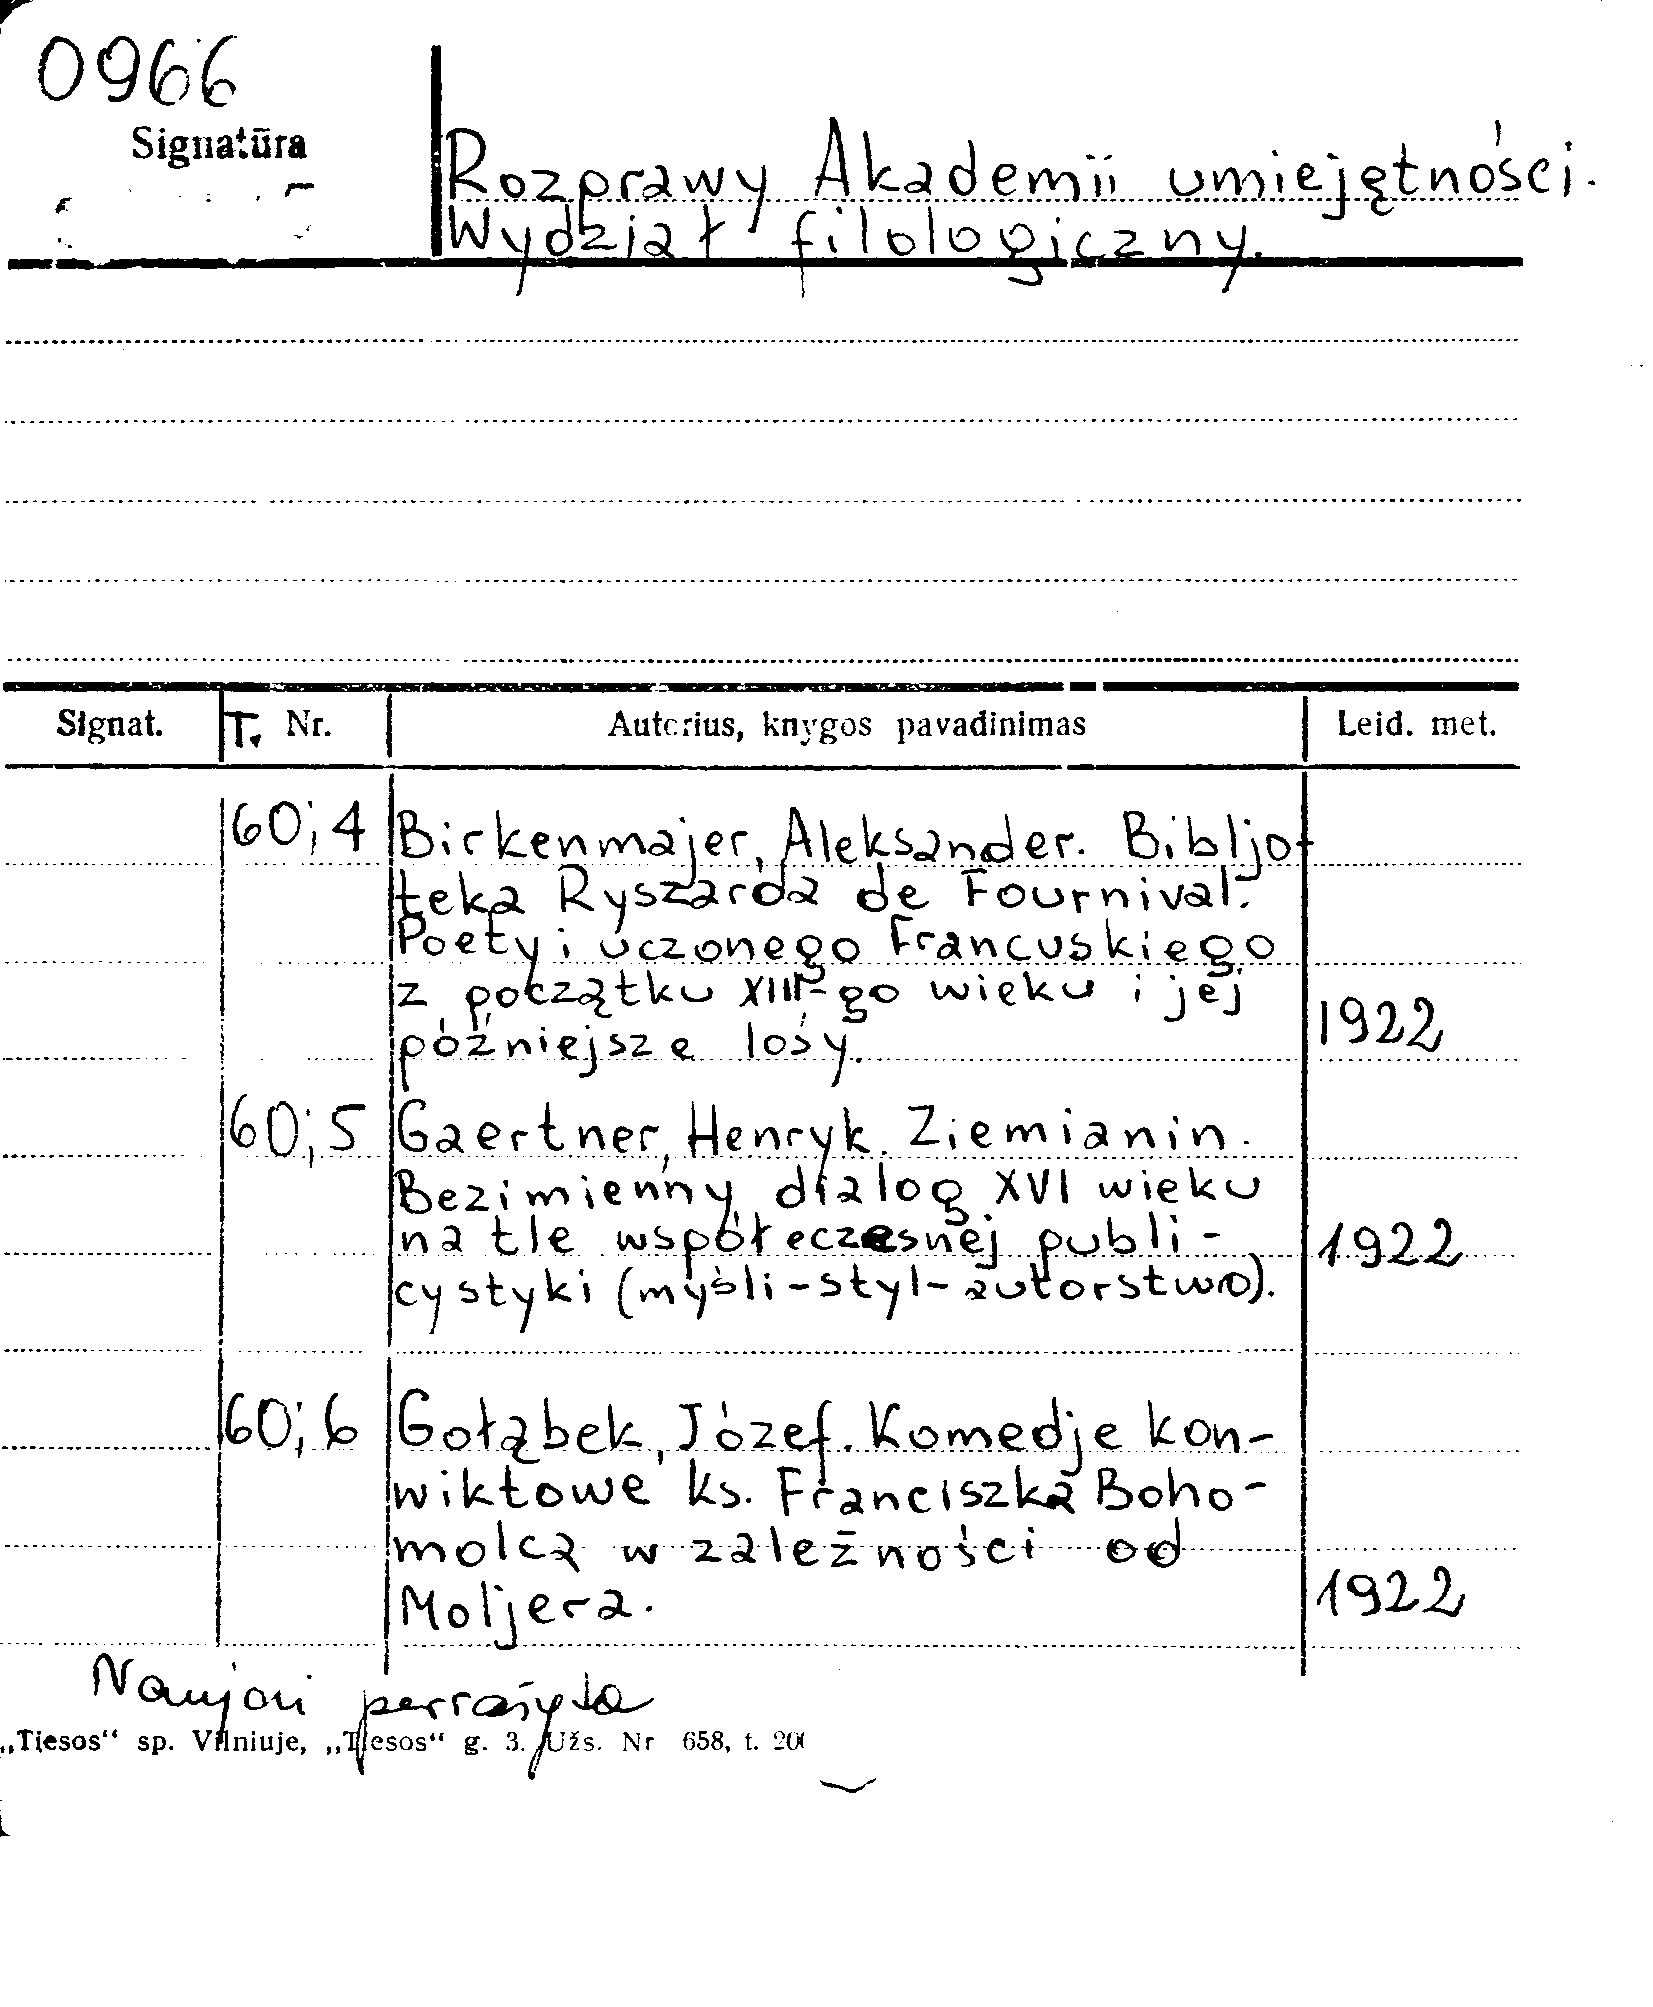 0966
Signatūra
Rozprawy Akademii umiejętności.
Wydział filologiczny.
Signat. T. Nr. Autorius, knygos pavadinimas Leid. met.
60; 4 Birkenmajer, Aleksander. Bibljo-
teka Ryszarda de Fournival.
Poety i uczonego Francuskiego
z początku XIII-go wieku i jej
późniejsze losy. 1922
60; 5 Gaertner, Henryk. Ziemianin.
Bezimienny dialog XVI wieku
na tle współeczesnej publi-
cystyki (myśli-styl-autorstwo). 1922
60; 6 Gołąbek, Józef. Komedje kon-
wiktowe ks. Franciszka Boho-
molca w zależności od
Moljera. 1922
Naujai perrašyta
„Tiesos“ sp. Vilniuje, „Tiesos“ g. 3. Užs. Nr 658, t. 200